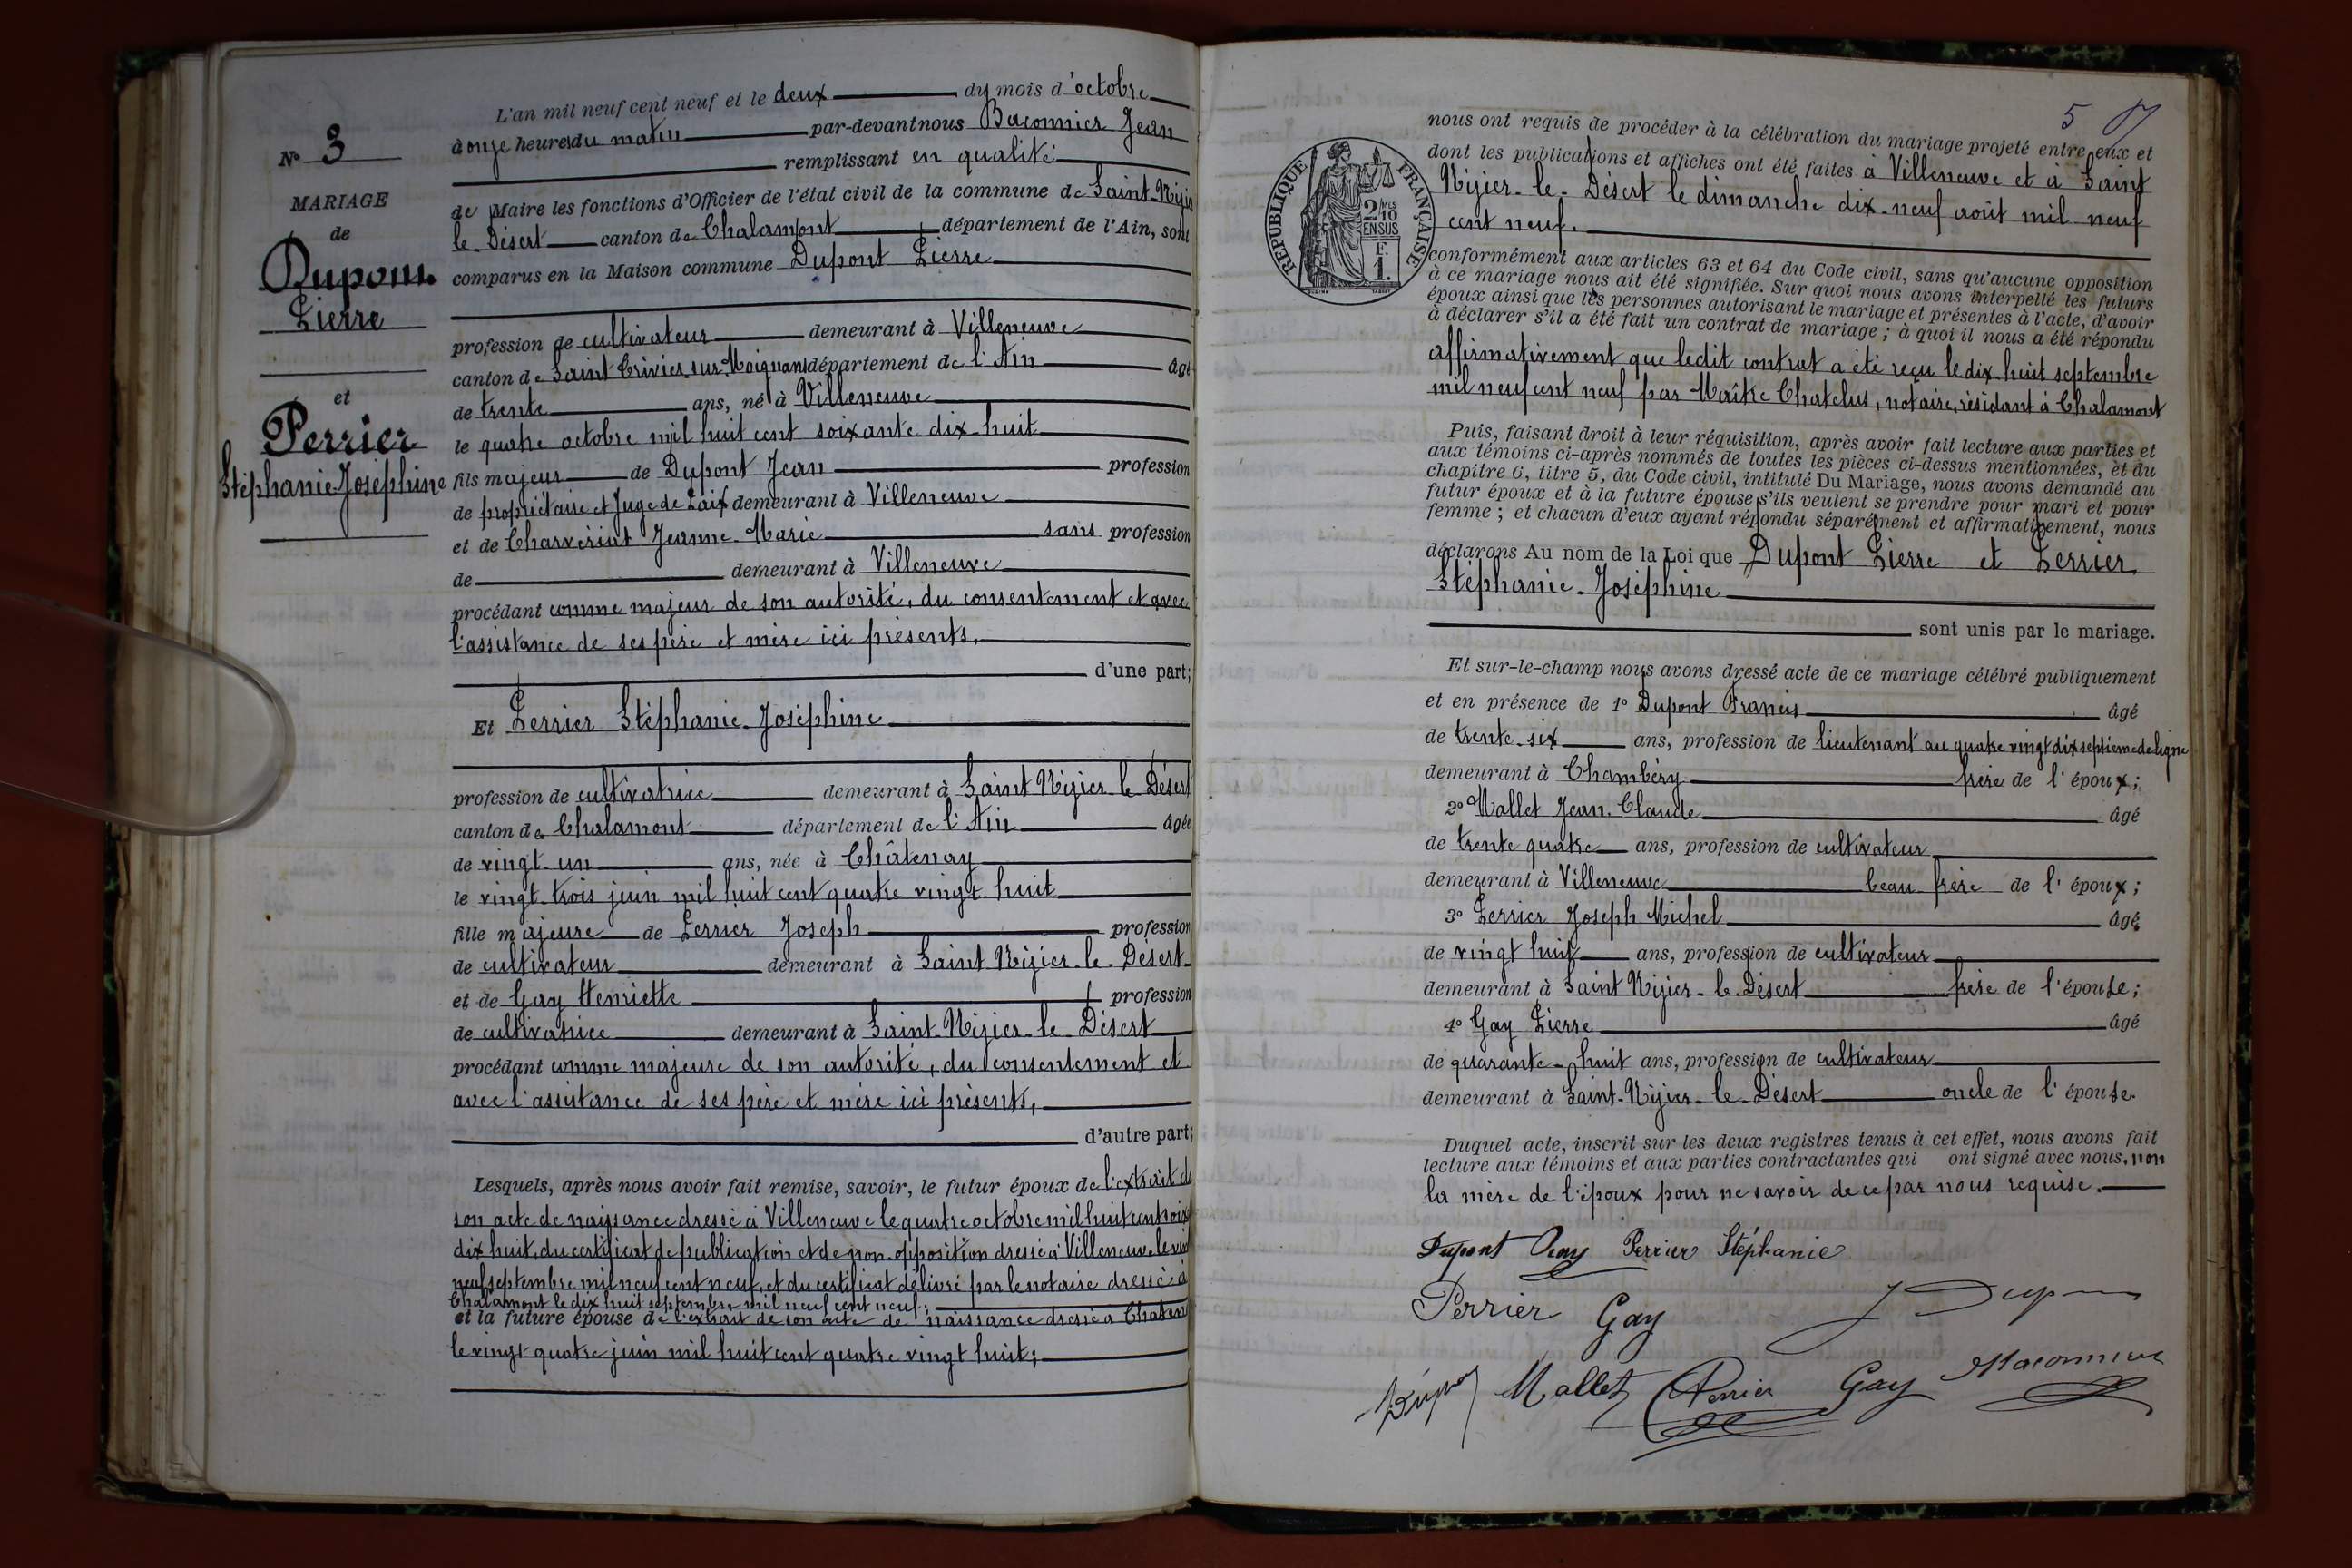 N° 3
MARIAGE
de
Dupont
Pierre
et
Perrier
Stéphanie-Joséphine
L'an mil neuf cent neuf et le deux du mois d'octobre
à onze heures du matin par-devant nous Baconnier Jean
remplissant en qualité
de Maire les fonctions d'Officier de l'état civil de la commune de Saint-Nizier
le-Désert canton de Chalamont département de l'Ain, sont
comparus en la Maison commune Dupont Pierre
profession de cultivateur demeurant à Villeneuve
canton de Saint Trivier-sur-Moignans département de l'Ain âgé
de trente ans, né à Villeneuve
le quatre octobre mil huit cent soixante-dix-huit
fils majeur de Dupont Jean profession
de propriétaire et Juge de Paix demeurant à Villeneuve
et de Charvériat Jeanne-Marie sans profession
de demeurant à Villeneuve
procédant comme majeur de son autorité, du consentement et avec
l'assistance de ses père et mère ici présents,
d'une part;
Et Perrier Stéphanie-Joséphine
profession de cultivatrice demeurant à Saint Nizier-le-Désert
canton de Chalamont département de l'Ain âgée
de vingt-un ans, née à Châtenay
le vingt-trois juin mil huit cent quatre-vingt-huit
fille majeure de Perrier Joseph profession
de cultivateur demeurant à Saint Nizier-le-Désert
et de Gay Henriette profession
de cultivatrice demeurant à Saint-Nizier-le-Désert
procédant comme majeure de son autorité, du consentement et
avec l'assistance de ses père et mère ici présents,
d'autre part;
Lesquels, après nous avoir fait remise, savoir, le futur époux de l'extrait de
son acte de naissance dressé à Villeneuve le quatre octobre mil huit cent soix
dix huit, du certificat de publication et de non-opposition dressé à Villeneuve le
neuf septembre mil neuf cent neuf, et du certificat délivré par le notaire dressé à
Chalamont le dix huit septembre mil neuf cent neuf;
et la future épouse de l'extrait de son acte de naissance dressé à Chaten
le vingt-quatre juin mil huit cent quatre vingt huit;
5
RÉPUBLIQUE FRANÇAISE
2/10
EN SUS
1
nous ont requis de procéder à la célébration du mariage projeté entre eux et
dont les publications et affiches ont été faites à Villeneuve et à Saint
Nizier-le-Désert le dimanche dix-neuf août mil neuf
cent neuf.
conformément aux articles 63 et 64 du Code civil, sans qu'aucune opposition
à ce mariage nous ait été signifiée. Sur quoi nous avons interpellé les futurs
époux ainsi que les personnes autorisant le mariage et présentes à l'acte, d'avoir
à déclarer s'il a été fait un contrat de mariage; à quoi il nous a été répondu
affirmativement que ledit contrat a été reçu le dix-huit septembre
mil neuf cent neuf par Maître Chatelus, notaire, résidant à Chalamont
Puis, faisant droit à leur réquisition, après avoir fait lecture aux parties et
aux témoins ci-après nommés de toutes les pièces ci-dessus mentionnées, et du
chapitre 6, titre 5, du Code civil, intitulé Du Mariage, nous avons demandé au
futur époux et à la future épouse s'ils veulent se prendre pour mari et pour
femme; et chacun d'eux ayant répondu séparément et affirmativement, nous
déclarons Au nom de la Loi que Dupont Pierre et Perrier
Stéphanie-Joséphine
sont unis par le mariage.
Et sur-le-champ nous avons dressé acte de ce mariage célébré publiquement
et en présence de 1° Dupont Francis âgé
de trente-six ans, profession de lieutenant au quatre vingt dix septième de ligne
demeurant à Chambéry frère de l'époux;
2° Mallet Jean-Claude âgé
de trente quatre ans, profession de cultivateur
demeurant à Villeneuve beau-frère de l'époux;
3° Perrier Joseph Michel âgé
de vingt huit ans, profession de cultivateur
demeurant à Saint Nizier-le-Désert frère de l'épouse;
4° Gay Pierre âgé
de quarante-huit ans, profession de cultivateur
demeurant à Saint-Nizier-le-Désert oncle de l'épouse.
Duquel acte, inscrit sur les deux registres tenus à cet effet, nous avons fait
lecture aux témoins et aux parties contractantes qui ont signé avec nous, non
la mère de l'époux pour ne savoir de ce par nous requise.
Dupont Perrier Stéphanie
Perrier Gay J Dupont
Dupont Mallet Perrier Gay Baconnier